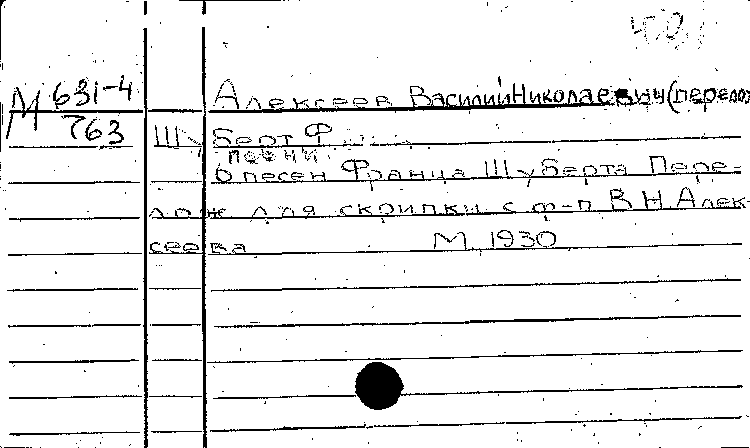 М 631-4
763
Алексеев Василий Николаевич (перелож
Шуберт Ф
песни
6 песен Франца Шуберта Пере-
лож для скрипки с ф-п В Н Алек-
сеева М. 1930